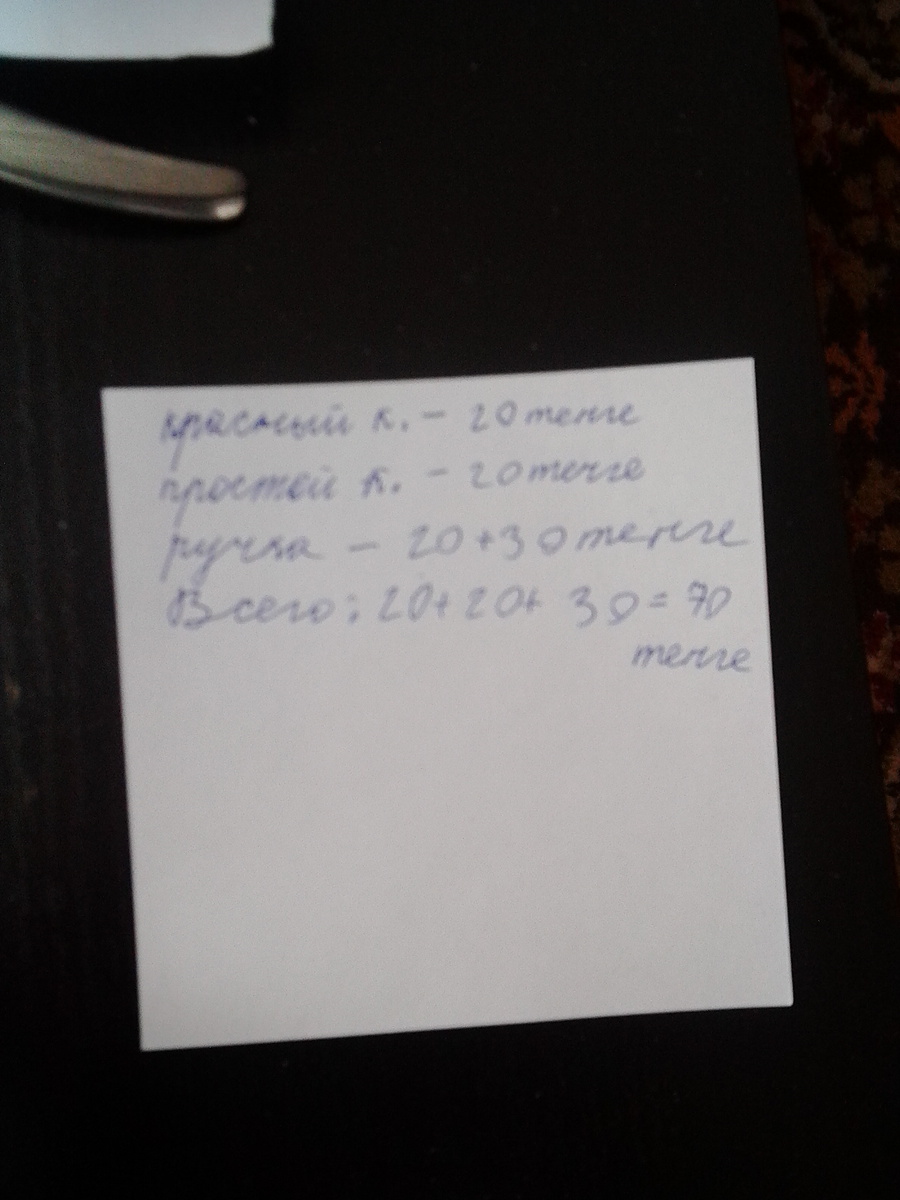 красный к. - 20 тенге
простой к. - 20 тенге
ручка - 20+30 тенге
Всего: 20+20+ 30= 70
тенге